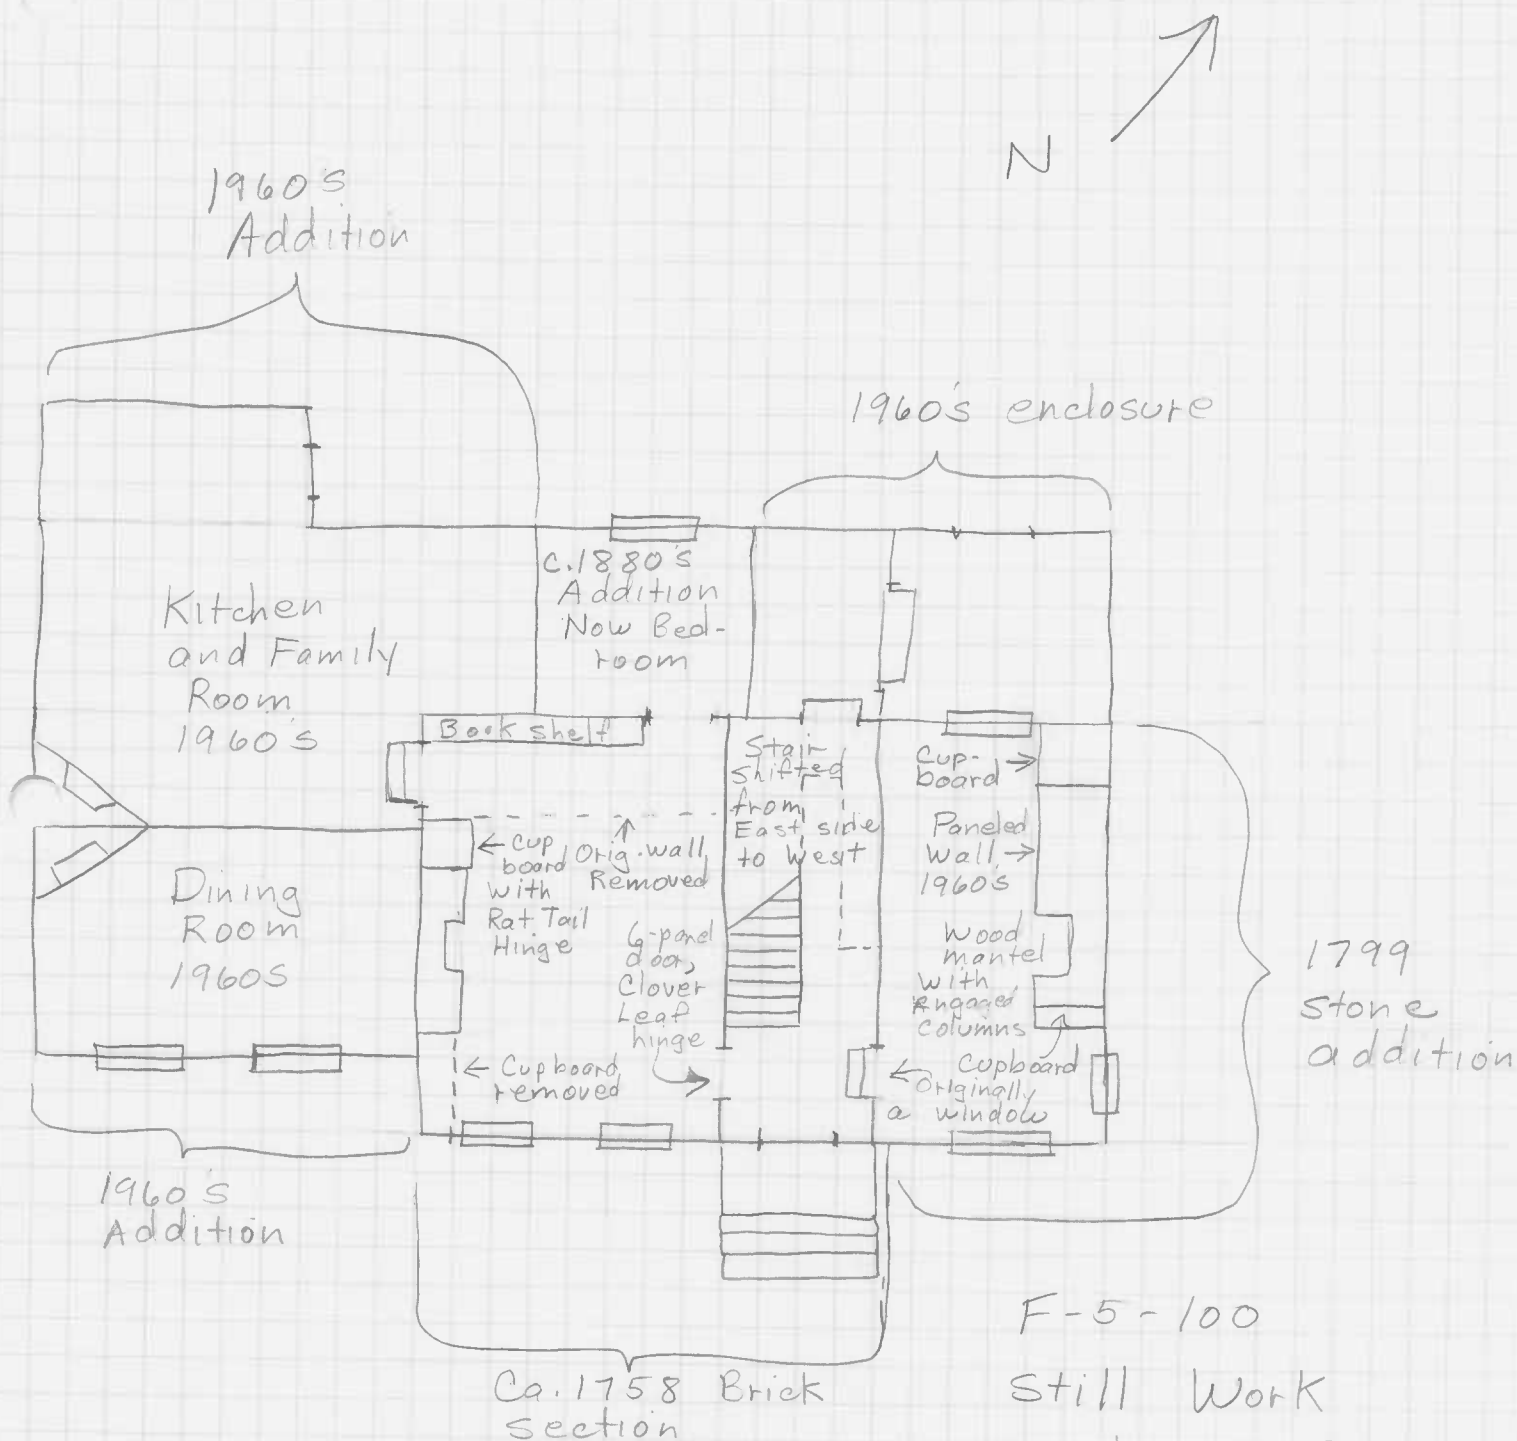 N
1960's
Addition
1960's enclosure
C.1880's
Addition
Now Bed-
room
Kitchen
and Family
Room
1960's
Book shelf
Stair
shifted
from
East side
to West
Cup-
board →
Paneled
Wall →
1960's
← Cup
board
with
Rat Tail
Hinge
Orig. wall
Removed
Dining
Room
1960s
6-panel
door,
Clover
Leaf
hinge
Wood
mantel
with
Engaged
Columns
1799
stone
addition
← Cupboard
removed
Cupboard
← Originally
a window
1960's
Addition
Ca. 1758 Brick
section
F-5-100
Still Work